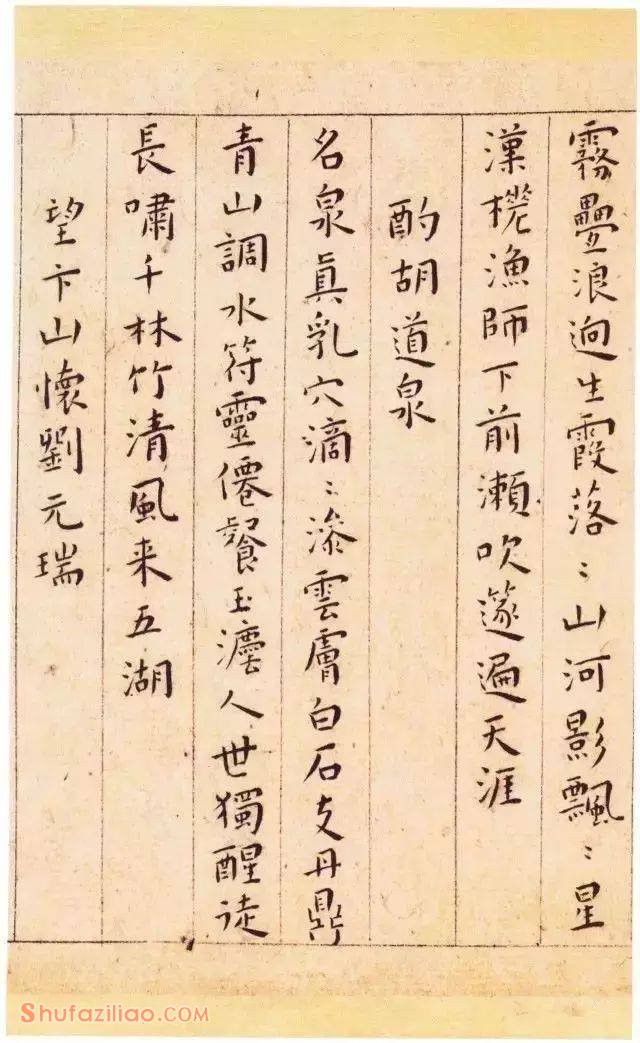 霧疊浪迥生霞落〻山河影飄〻星
漢槎漁師下前瀨吹篴遍天涯
酌胡道泉
名泉真乳穴滴〻滲雲膚白石支丹鼎
青山調水符靈僊餐玉瀣人世獨醒徒
長嘯千林竹清風来五湖
望卞山懷劉元瑞
SHUFAZILIAO.COM